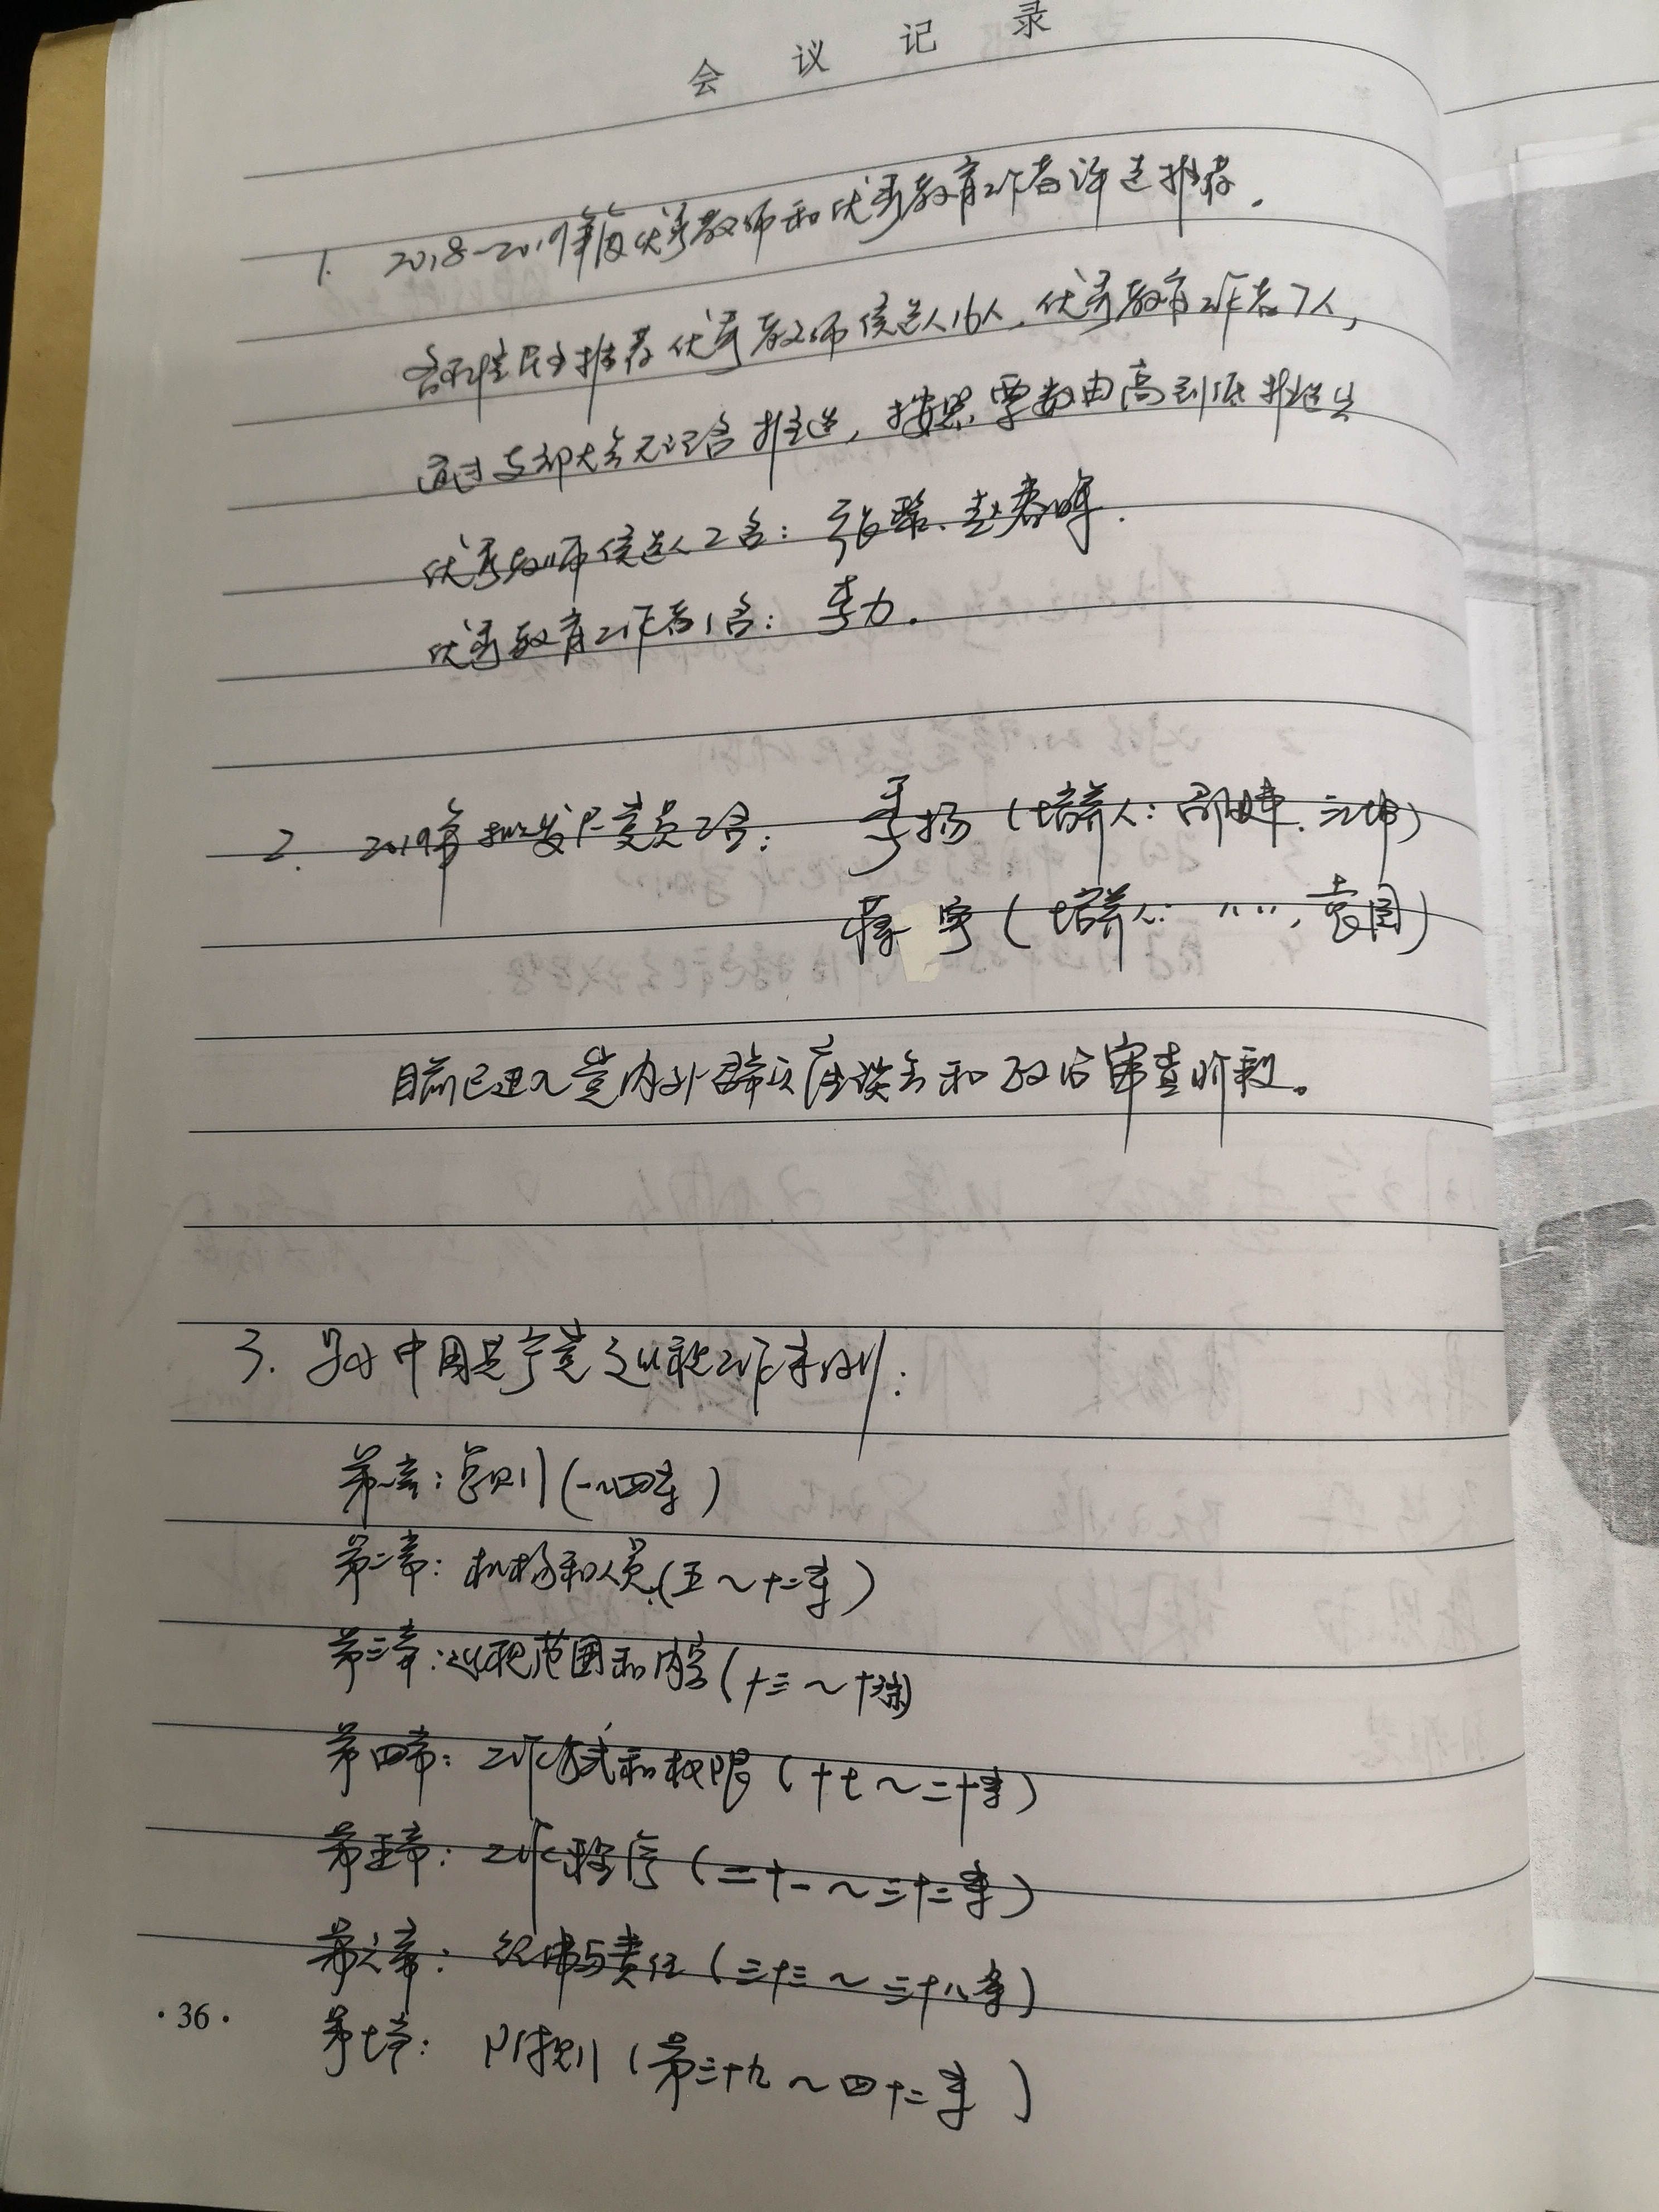 会议记录
1. 2018-2019年度优秀教师和优秀教育工作者评选推荐.
各系推民主推荐优秀教师候选人16人,优秀教育工作者7人,
通过支部大会无记名推选,按照票数由高到低推选出
优秀教师候选人2名:张黎、赵春晖.
优秀教育工作者1名:李力.
2. 2019年拟发展党员2名: 季扬(培养人:
蒋宇(培养人: 〃〃,袁园)
目前已进入党内外群众座谈会和政治审查阶段。
3. 学习中国共产党巡视工作条例:
第一章:总则(一~四条)
第二章:机构和人员(五~十二条)
第三章:巡视范围和内容(十三~十六条)
第四章:工作方式和权限(十七~二十条)
第五章:工作程序(二十一~三十二条)
第六章:纪律与责任(三十三~三十八条)
第七章:附则(第三十九~四十二条)
·36·